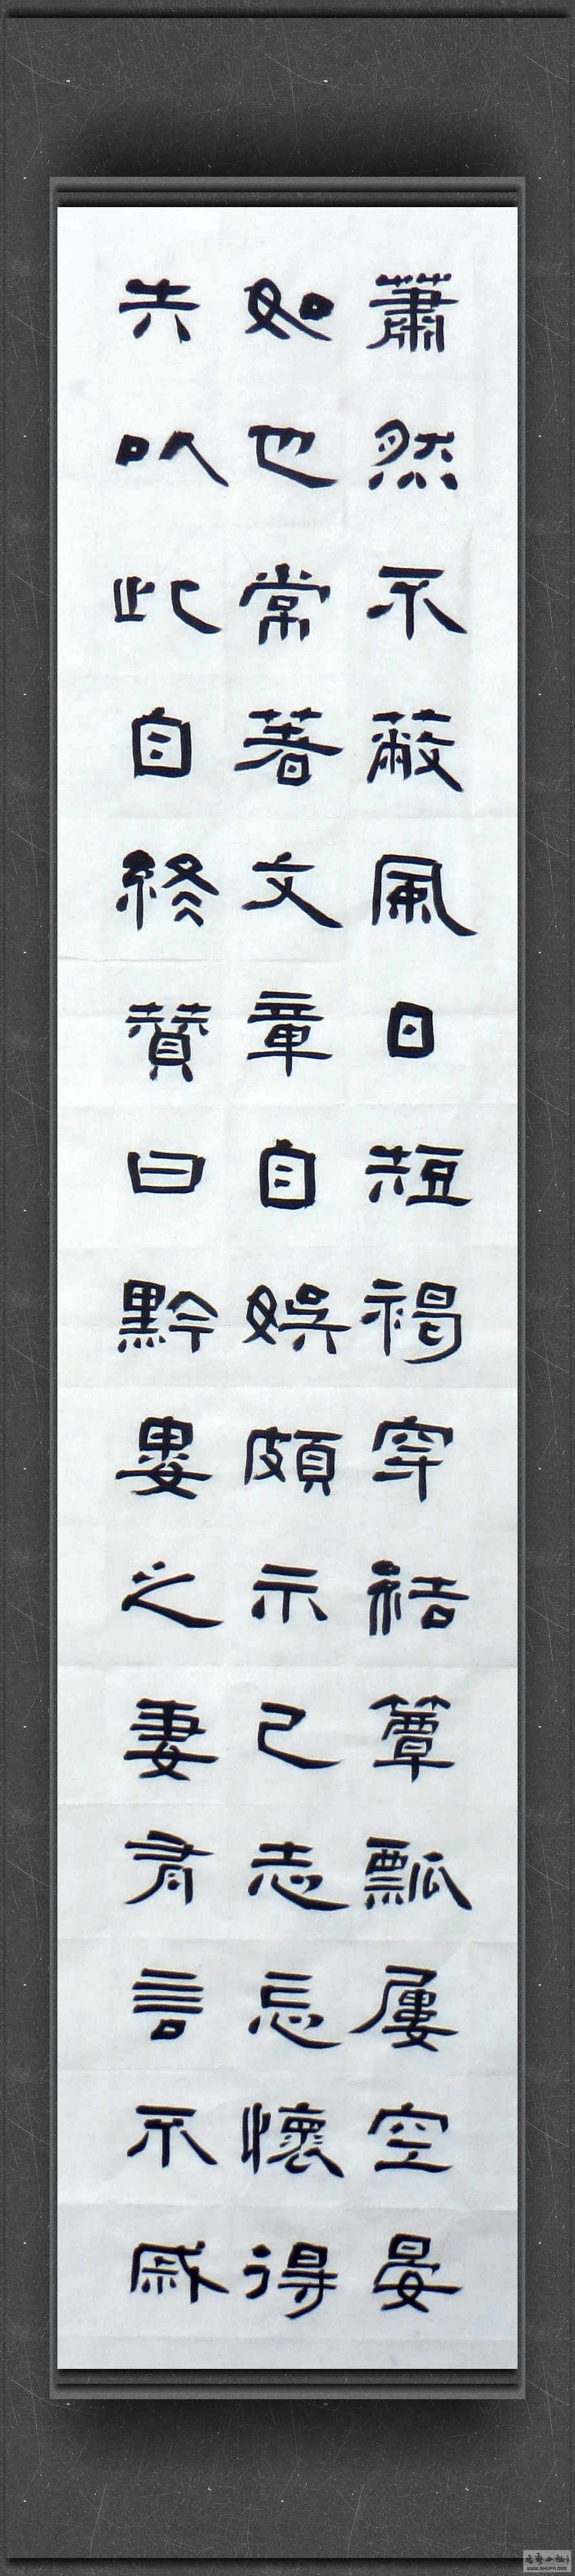 蕭然不蔽風日短褐穿結簞瓢屢空晏
如也常著文章自娛頗示己志忘懷得
失以此自終贊曰黔婁之妻有言不戚
WWW.SHUFA.ORG